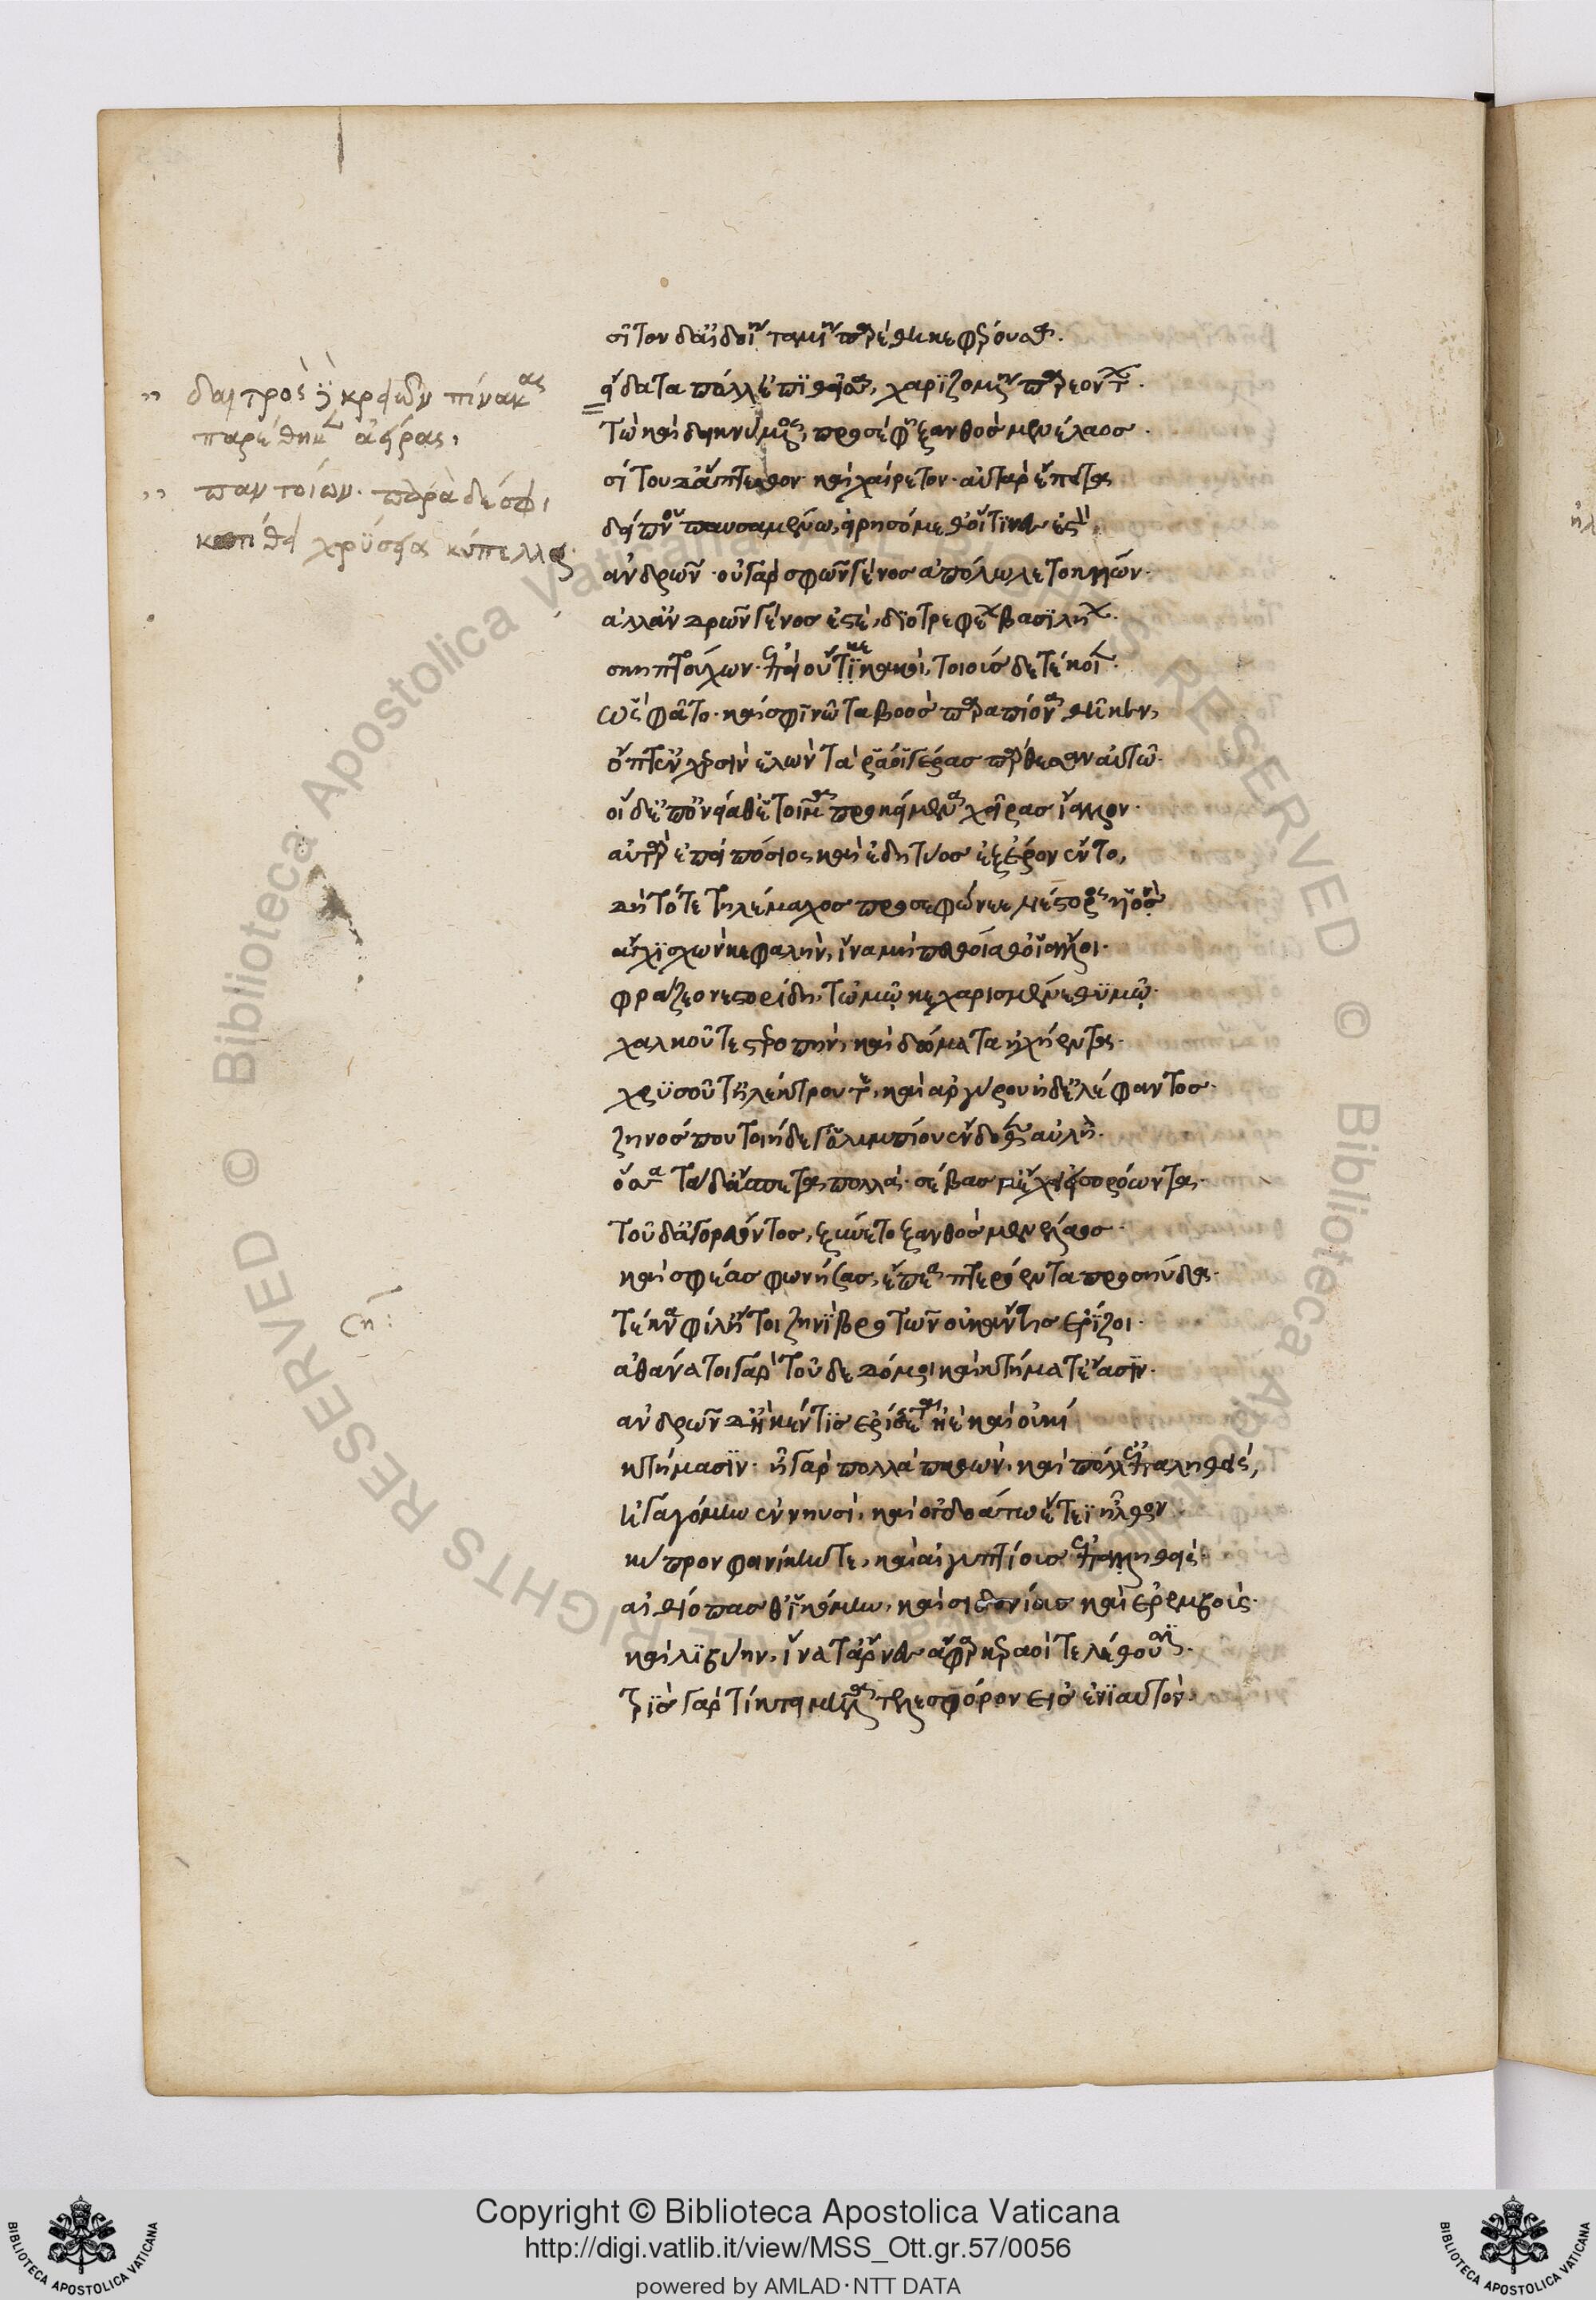 σῖτον δ' αἰδοίη ταμίη παρέθηκε φέρουσα.
εἴδατα πόλλ' ἐπιθεῖσα, χαριζομένη παρεόντων.
τὼ καὶ δεικνύμενος, προσέφη ξανθὸς μενέλαος.
σίτου δ' ἅπτεσθον καὶ χαίρετον. αὐτὰρ ἔπειτα
δείπνου παυσαμένω, εἰρησόμεθ' οἵτινες ἐστὸν
ἀνδρῶν. οὐ γὰρ σφῶν γένος ἀπόλωλε τοκήων.
ἀλλ' ἀνδρῶν γένος ἐστὲ, διοτρεφέων βασιλήων.
σκηπτούχων. ἐπεὶ οὔ τι κε κακοὶ, τοιούσδε τέκοιεν.
ὣς φάτο. καί σφιν νῶτα βοὸς παρὰ πίονα θῆκεν,
ὄπτ' ἐν χερσὶν ἑλών. τά ῥά οἱ γέρας πάρθεσαν αὐτῷ.
οἱ δ' ἐπ' ὀνείαθ' ἑτοῖμα προκείμενα χεῖρας ἴαλλον.
αὐτὰρ ἐπεὶ πόσιος καὶ ἐδητύος ἐξ ἔρον ἕντο,
δὴ τότε τηλέμαχος προσεφώνεε νέστορος υἱὸν
ἄγχι σχὼν κεφαλὴν, ἵνα μὴ πευθοίαθ' οἱ ἄλλοι.
φράζεο νεστορίδη, τῷ ἐμῷ κεχαρισμένε θυμῷ.
χαλκοῦ τε στεροπὴν, καὶ δώματα ἠχήεντα.
χρυσοῦ τ' ἠλέκτρου τε, καὶ ἀργύρου ἠδ' ἐλέφαντος.
ζηνός που τοιήδε γ' ὀλυμπίου ἔνδοθεν αὐλή.
ὅσσα τάδ' ἄσπετα πολλά. σέβας μ' ἔχει εἰσορόωντα.
τοῦ δ' ἀγορεύοντος, ξύνετο ξανθὸς μενέλαος.
καὶ σφέας φωνήσας, ἔπεα πτερόεντα προσηύδα.
τέκνα φίλ' ἤτοι ζηνὶ βροτῶν οὐκ ἄν τις ἐρίζοι.
ἀθάνατοι γὰρ τοῦδε δόμοι καὶ κτήματ' ἔασιν.
ἀνδρῶν δ' ἤ κέν τις ἐρίσσεται ἠὲ καὶ οὐκί
κτήμασιν. ἦ γὰρ πολλὰ παθὼν, καὶ πόλλ' ἐπαληθεὶς,
ἠγαγόμην ἐν νηυσὶ, καὶ ὀγδοάτῳ ἔτει ἦλθον.
κύπρον φοινίκην τε, καὶ αἰγυπτίους ἐπαληθείς.
αἰθίοπας θ' ἱκόμην, καὶ σιδονίους καὶ ἐρεμβούς.
καὶ λιβύην, ἵνα τ' ἄρνες ἄφαρ κεραοὶ τελέθουσι.
τρὶς γὰρ τίκτει μῆλα τελεσφόρον εἰς ἐνιαυτόν.
" δαιτρὸς δὲ κρειῶν πίνακας
παρέθηκεν ἀείρας,
" παντοίων. παρὰ δέ σφι,
τίθει χρύσεια κύπελλα.
ση:
© Biblioteca Apostolica Vaticana ALL RIGHTS RESERVED © Biblioteca Apostolica Vaticana ALL RIGHTS RESERVED
Copyright © Biblioteca Apostolica Vaticana
http://digi.vatlib.it/view/MSS_Ott.gr.57/0056
powered by AMLAD·NTT DATA
BIBLIOTECA APOSTOLICA VATICANA
BIBLIOTECA APOSTOLICA VATICANA